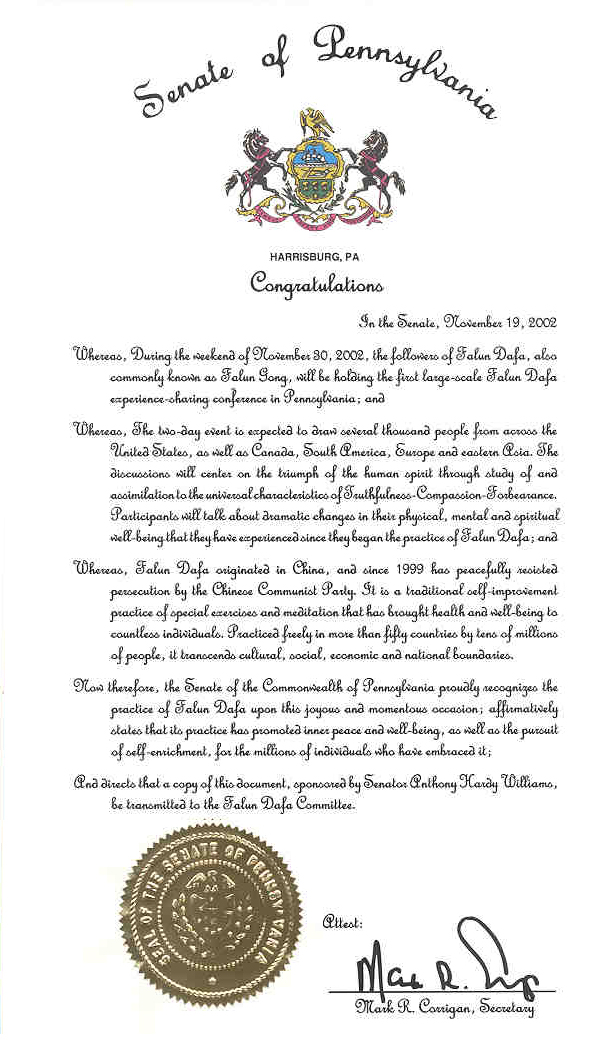 Senate of Pennsylvania
HARRISBURG, PA
Congratulations
In the Senate, November 19, 2002
Whereas, During the weekend of November 30, 2002, the followers of Falun Dafa, also
commonly known as Falun Gong, will be holding the first large-scale Falun Dafa
experience-sharing conference in Pennsylvania; and
Whereas, The two-day event is expected to draw several thousand people from across the
United States, as well as Canada, South America, Europe and eastern Asia. The
discussions will center on the triumph of the human spirit through study of and
assimilation to the universal characteristics of Truthfulness-Compassion-Forbearance.
Participants will talk about dramatic changes in their physical, mental and spiritual
well-being that they have experienced since they began the practice of Falun Dafa; and
Whereas, Falun Dafa originated in China, and since 1999 has peacefully resisted
persecution by the Chinese Communist Party. It is a traditional self-improvement
practice of special exercises and meditation that has brought health and well-being to
countless individuals. Practiced freely in more than fifty countries by tens of millions
of people, it transcends cultural, social, economic and national boundaries.
Now therefore, the Senate of the Commonwealth of Pennsylvania proudly recognizes the
practice of Falun Dafa upon this joyous and momentous occasion; affirmatively
states that its practice has promoted inner peace and well-being, as well as the pursuit
of self-enrichment, for the millions of individuals who have embraced it;
And directs that a copy of this document, sponsored by Senator Anthony Hardy Williams,
be transmitted to the Falun Dafa Committee.
SEAL OF THE SENATE OF PENNSYLVANIA
Attest:
Mark R.
Mark R. Corrigan, Secretary